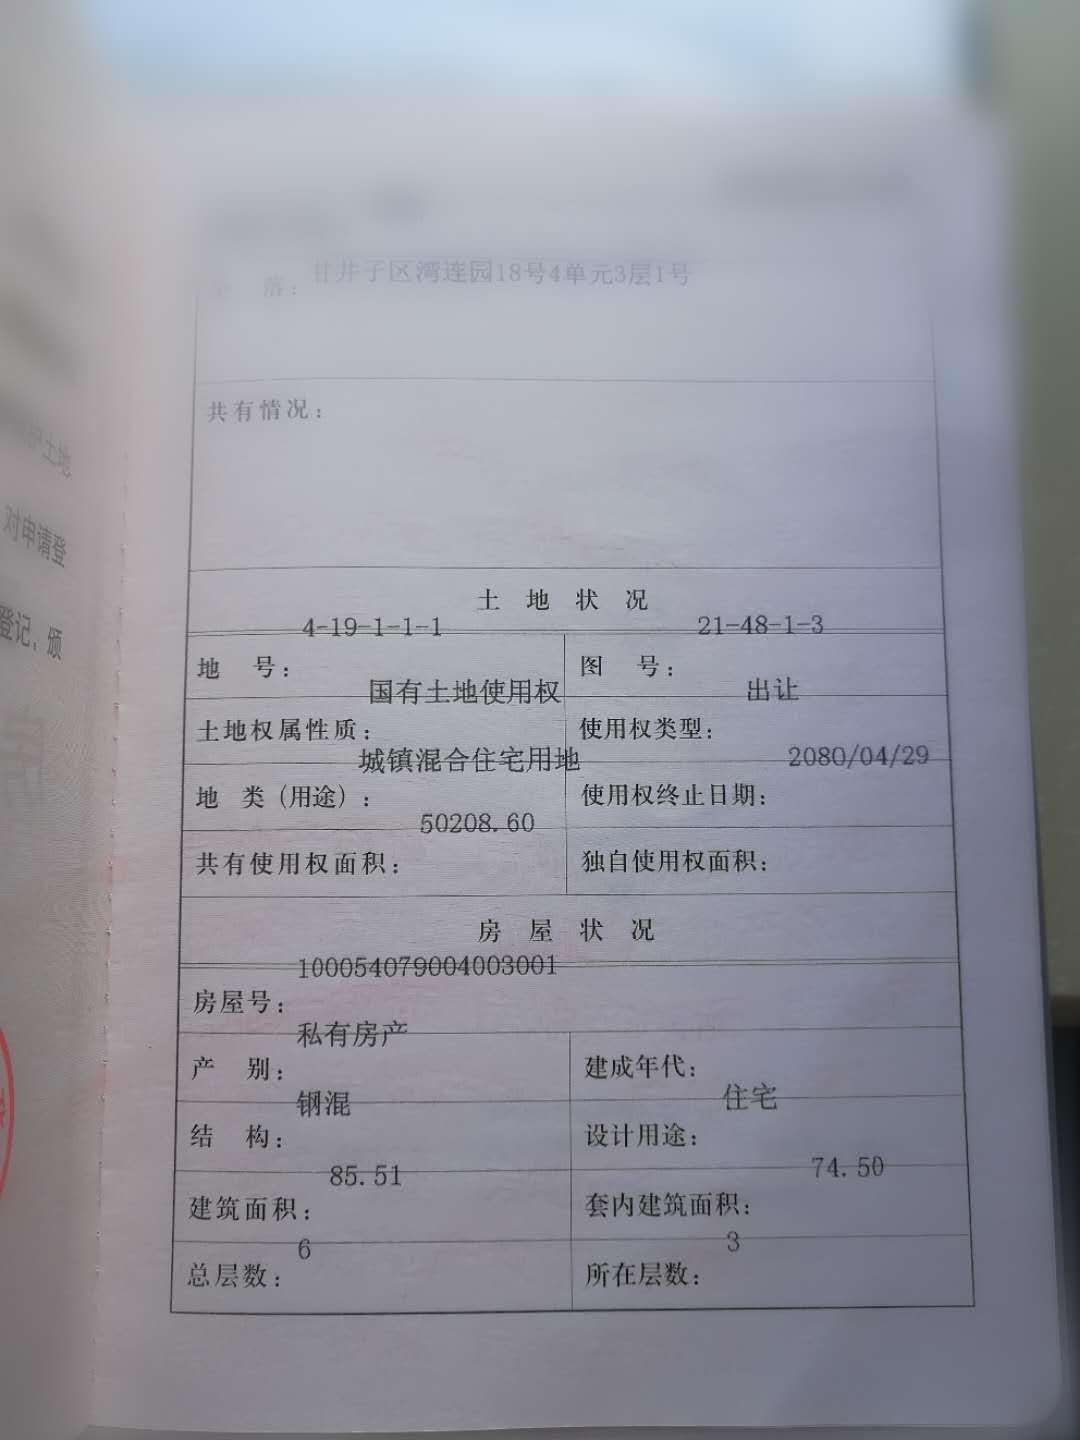 甘井子区湾连园18号4单元3层1号
落：
共有情况：
土地状况
4-19-1-1-1 21-48-1-3
地号： 图号：
国有土地使用权 出让
土地权属性质： 使用权类型：
城镇混合住宅用地 2080/04/29
地类（用途）： 使用权终止日期：
50208.60
共有使用权面积： 独自使用权面积：
房屋状况
100054079004003001
房屋号：
私有房产
产别： 建成年代：
钢混 住宅
结构： 设计用途：
85.51 74.50
建筑面积： 套内建筑面积：
6 3
总层数： 所在层数：
土地
对申请登
登记、颁